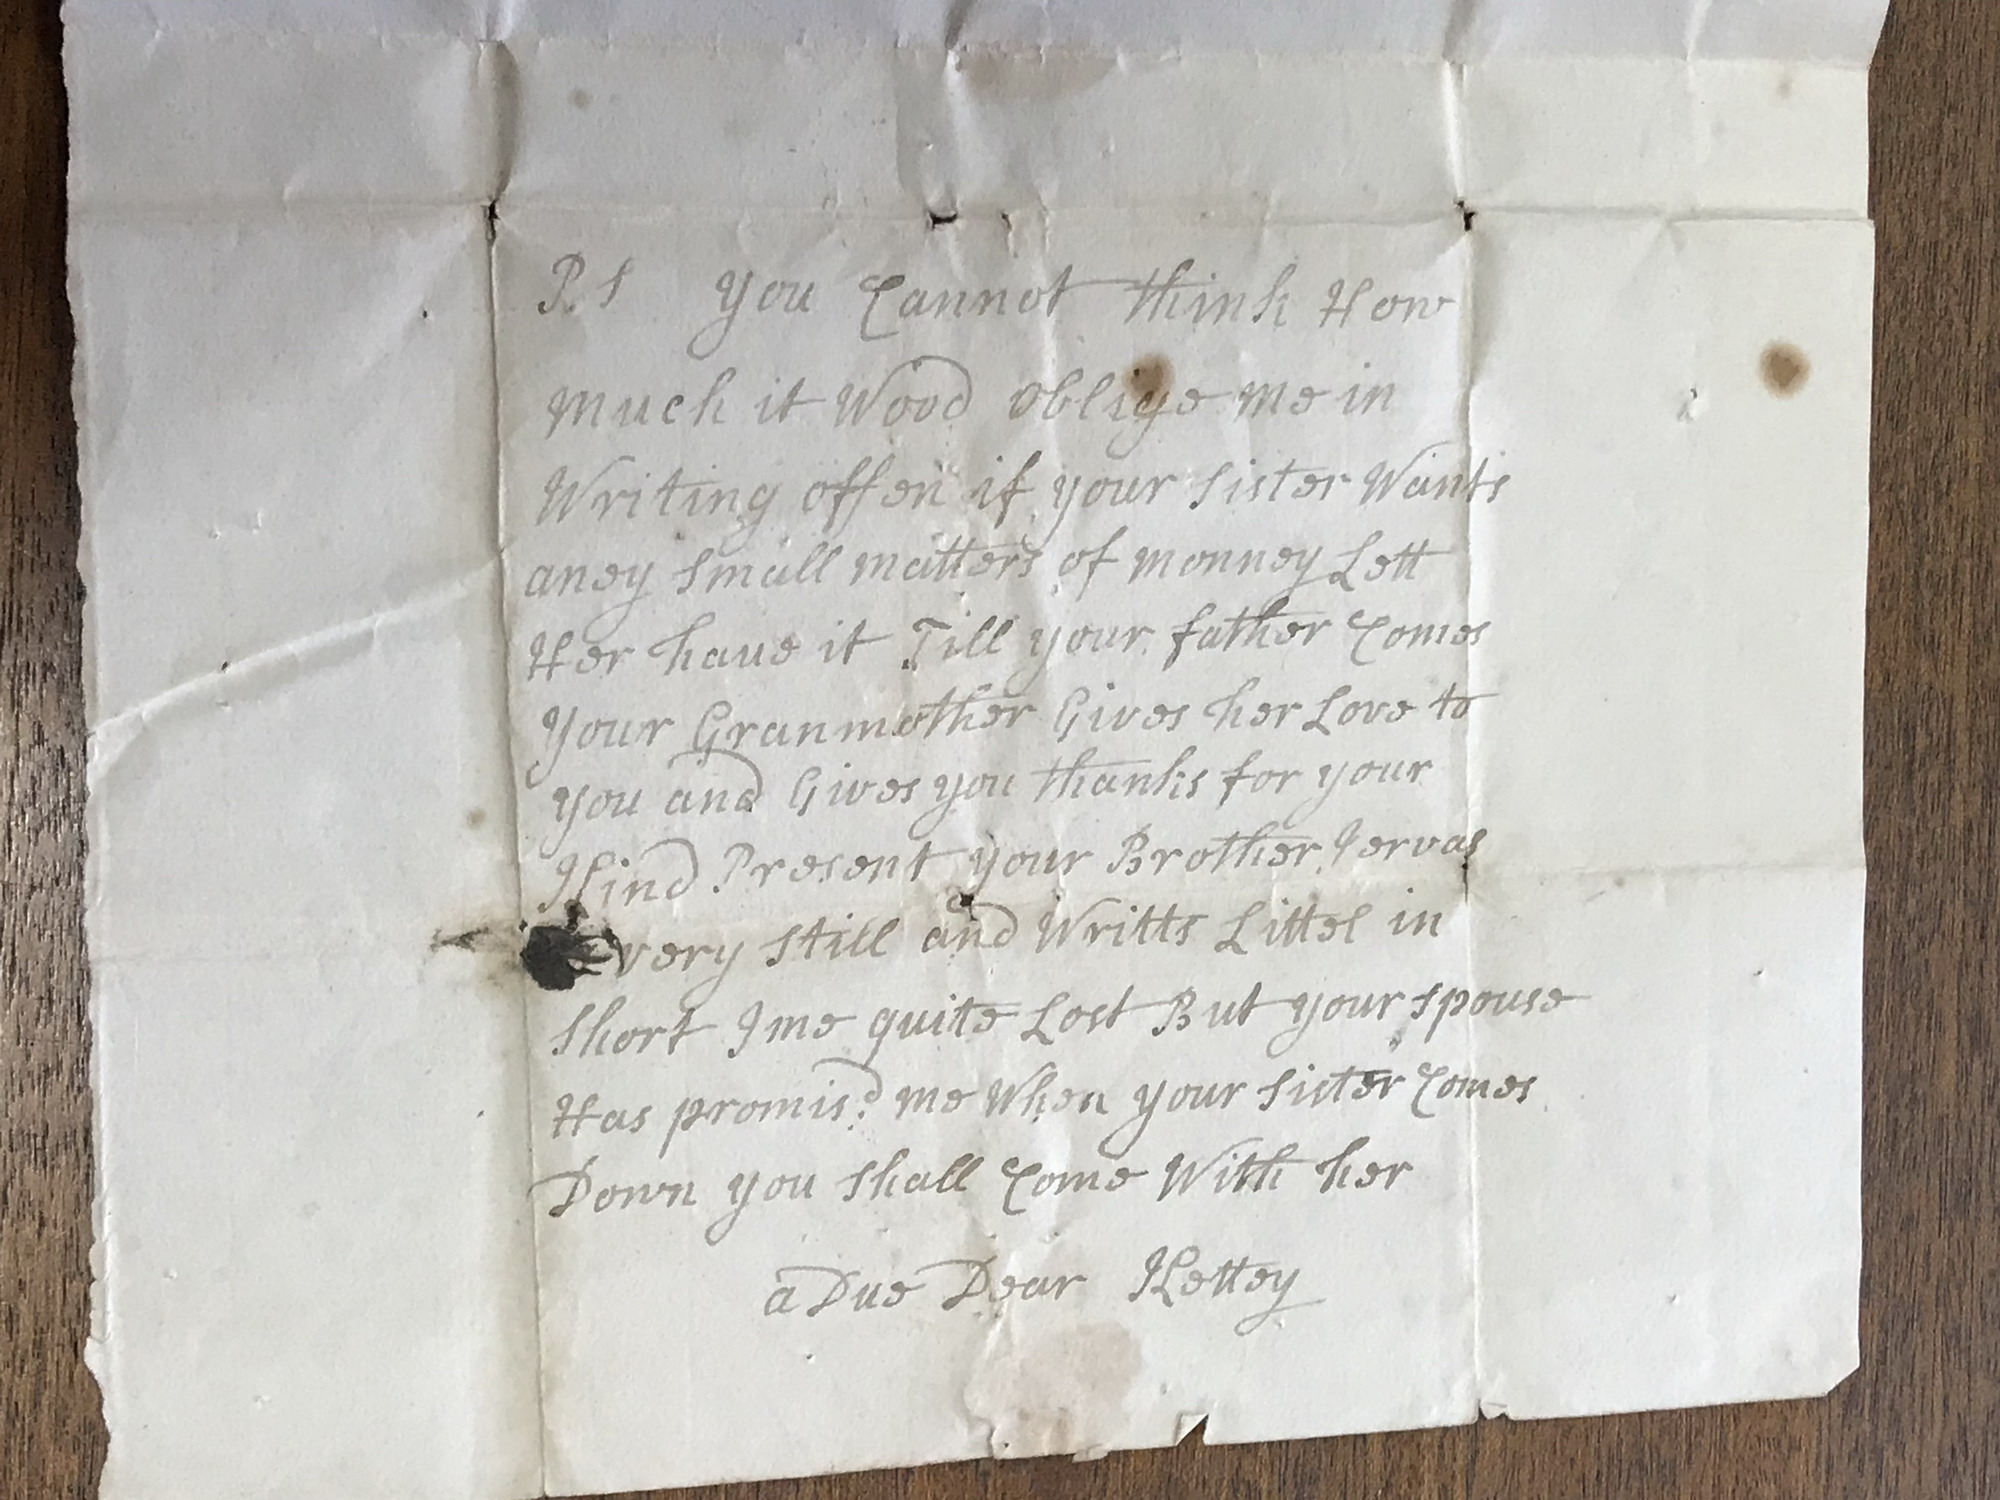 P.S You Cannot think How
much it Wood oblige me in
Writing offen if your Sister Wants
aney Small matters of monney Lett
Her have it Till your father Comes
Your Granmother Gives her Love to
you and Gives you thanks for your
Kind Present your Brother Jervas
very Still and Writts Littel in
Short Ime quite Lost But your Spouse
Has promis.d me When your Sister Comes
Down you Shall Come With her
a Due Dear Hettey